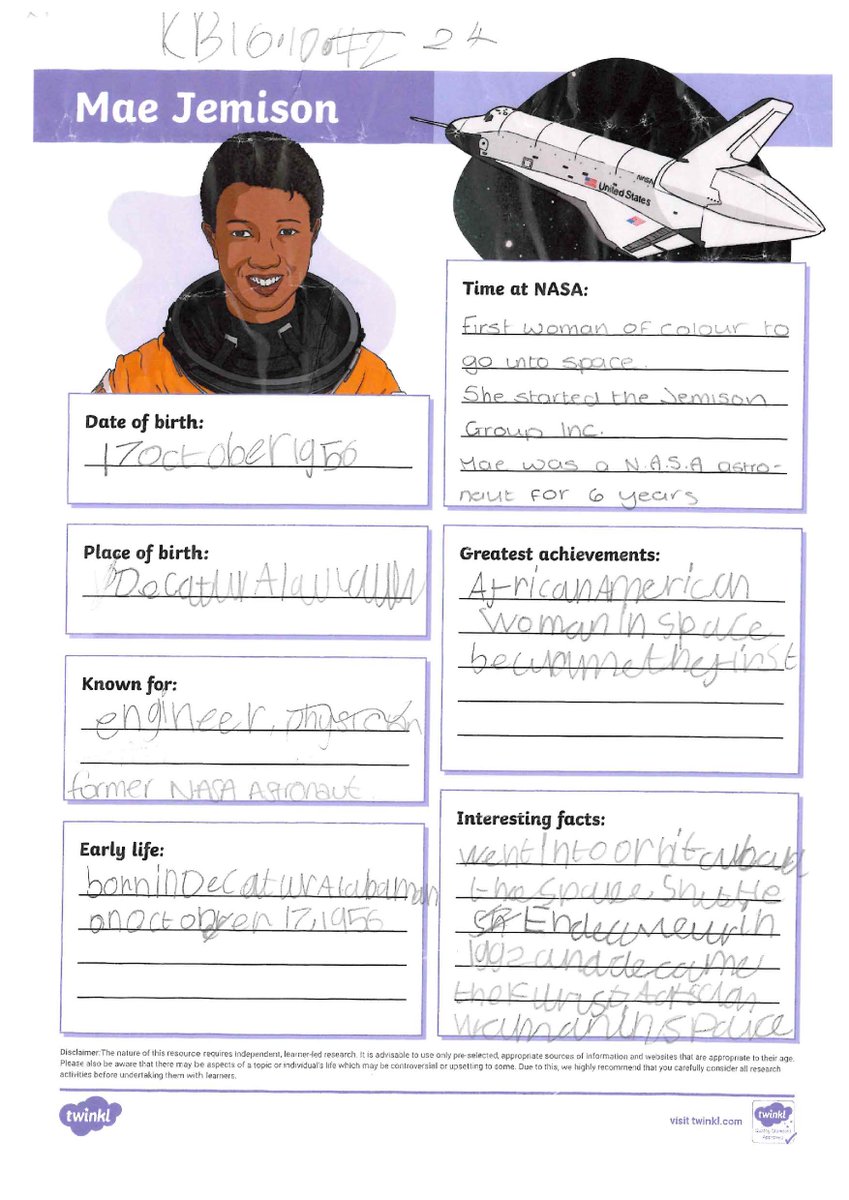 KB 16.10. 24
Mae Jemison
NASA
United States
Date of birth:
17 October 1956
Place of birth:
Decatur
Known for:
engineer, physician
former NASA Astronaut.
Early life:
born in Decatur Alabaman
on October 17, 1956
Time at NASA:
First woman of colour to
go into space.
She started the Jemison
Group Inc.
Mae was a N.A.S.A astro-
naut for 6 years
Greatest achievements:
African American
woman in space
the first
Interesting facts:
went into orbit
the space Shuttle
in
1992 and
the
in space
Disclaimer: The nature of this resource requires independent, learner-led research. It is advisable to use only pre-selected, appropriate sources of information and websites that are appropriate to their age.
Please also be aware that there may be aspects of a topic or individual's life which may be controversial or upsetting to some. Due to this, we highly recommend that you carefully consider all research
activities before undertaking them with learners.
twinkl
visit twinkl.com
twinkl
Quality Standard
Approved